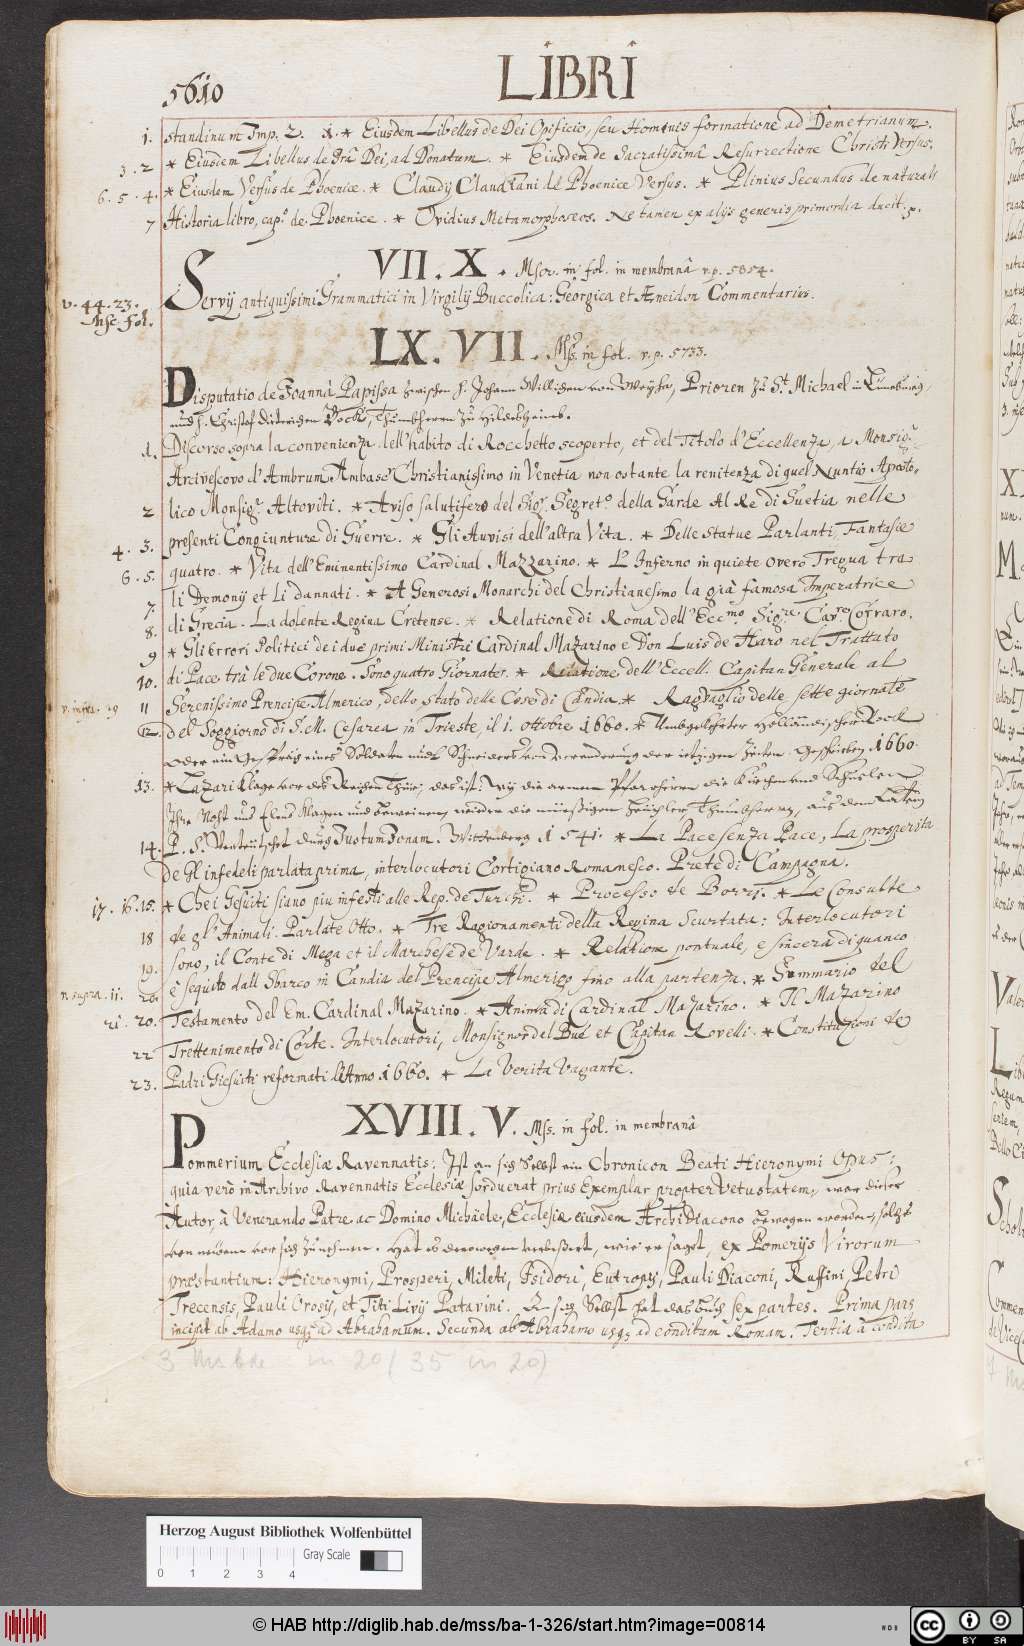 5610
LIBRI
1. standinum Imp. 2. 1. * Eiusdem Libellus de Dei Opificio, seu Hominis formatione ad Demetrianum.
3. 2 * Eiusdem Libellus de Irâ Dei, ad Donatum. * Eiusdem de Sacratissimâ Resurrectione Christi Versus.
6. 5. 4. * Eiusdem Versus de Phoenice. * Claudij Claudiani de Phoenice Versus. * Plinius Secundus de naturali
7 Historia libro, cap.º de Phoenice. * Ovidius Metamorphoseos. Ne tamen ex alijs generis primordia ducit. p.
VII. X. Mscr. in fol. in membranâ v.p. 5854.
v. 44. 23. Msc. fol.
Servij antiquissimi Grammatici in Virgilij Buccolica: Georgica et Æneidon Commentarius.
LX. VII. Mss. in fol. v. p. 5733.
Disputatio de Joannâ Papissa zwischen H. Johann Willichen von Weyhe, Prioren zu St. Michael in Lüneburg,
und H. Christof Dieterichen Bock, Thumbherren zu Hildesheimb.
1. Discorso sopra la convenienza dell'habito di Rocchetto scoperto, et del Titolo d'Eccellenza, a Monsig.r
Arcivescovo d'Ambrum Ambasc.r Christianissimo in Venetia non ostante la renitenza di quel Nuntio Aposto-
2 lico Monsig.r Altoviti. * Aviso salutifero del Sig.r Segret.o della Garde Al Re di Suetia nelle
4. 3. presenti Congiunture di Guerre. * Gli Auvisi dell'altra Vita. * Delle Statue Parlanti, Fantasie
6. 5. quatro. * Vita dell'Eminentissimo Cardinal Mazzarino. * L'Inferno in quiete overo Tregua tra
7. li Demonij et li dannati. * A Generosi Monarchi del Christianesimo la già famosa Imperatrice
8. di Grecia. La dolente Regina Cretense. * Relatione di Roma dell'Ecc.mo Sig.re Cav.re Corraro.
9 * Gli Errori Politici dei due primi Ministri Cardinal Mazarino e Don Luis de Haro nel Trattato
10. di Pace trà le due Corone. Sono quatro Giornate. * Relatione dell'Eccell. Capitan Generale al
v. infra. 19 11 Serenissimo Prencipe Almerico, dello stato delle Cose di Candia * Ragvaglio delle sette giornate
12. del Soggiorno di S. M. Cesarea in Trieste, il 1. ottobre 1660. * Umbgekehrter Holländischer Rock
oder ein Gespräch eines Soldaten und Schneiders von veränderung der ietzigen Zeiten. Geschrieben 1660.
13. * Lazari Klage vor des Reichen Thür, das ist: wij die armen Pfarherren die Kirchen und Schuelen
Ihre Noht und Elend klagen und beweinen, wieder die müessigen Heuchler, Thumbherren, aus dem Latein
14. P. S. Verteutschet durg Justum Jonam. Wittenberg 1541. * La Pace senza Pace, La prosperita
de Gl'infedeli parlata prima, interlocutori Cortigiano Romanesco. Prete di Campagna.
17. 16. 15. * Che i Gesuiti siano piu infesti alle Rep. de Turchi. * Processo de Borri. * Le Consulte
18 de gl'Animali. Parlate Otto. * Tre Ragionamenti della Regina Scurtata: Interlocutori
19. sono, il Conte di Mega et il Marchese de Varde. * Relatione pontuale, e sincera di quanco
n. supra. 11. 20. è seguito dall Sbarco in Candia del Prencipe Almerigo fino alla partenza. * Sommario del
21. 20. Testamento del Em. Cardinal Mazarino. * Anima di Cardinal Mazarino. * Il Mazarino
22 Trettenimento di Corte. Interlocutori, Monsignor del Bue et Capitan Rovelli. * Constitutioni de
23. Padri Giesuiti reformati l'Anno. 1660. * La Verita Vagante.
XVIII. V. Mss. in fol. in membranâ
Pommerium Ecclesiæ Ravennatis: Ist an sich Selbst ein Chronicon Beati Hieronymi Opus:
quia verò in Archivo Ravennatis Ecclesiæ sorduerat prius Exemplar propter Vetustatem, war dieser
Autor, à Venerando Patre ac Domino Michaele, Ecclesiæ eiusdem Archidiacono bewogen worden, solches
von newem vor sich zunehmen. Hat es derowegen verbessert, wie er saget, ex Pomerijs Virorum
præstantium: Hieronymi, Prosperi, Mileti, Isidori, Eutropij, Pauli Diaconi, Ruffini, Petri
Trecensis, Pauli Orosij, et Titi Livij Patavini. An sich Selbst hat das buch sex partes. Prima pars
incipit ab Adamo usq; ad Abrahamum. Secunda ab Abrahamo usq; ad conditam Romam. Tertia à condita
Herzog August Bibliothek Wolfenbüttel
0 1 2 3 4 Gray Scale
© HAB http://diglib.hab.de/mss/ba-1-326/start.htm?image=00814
cc BY SA